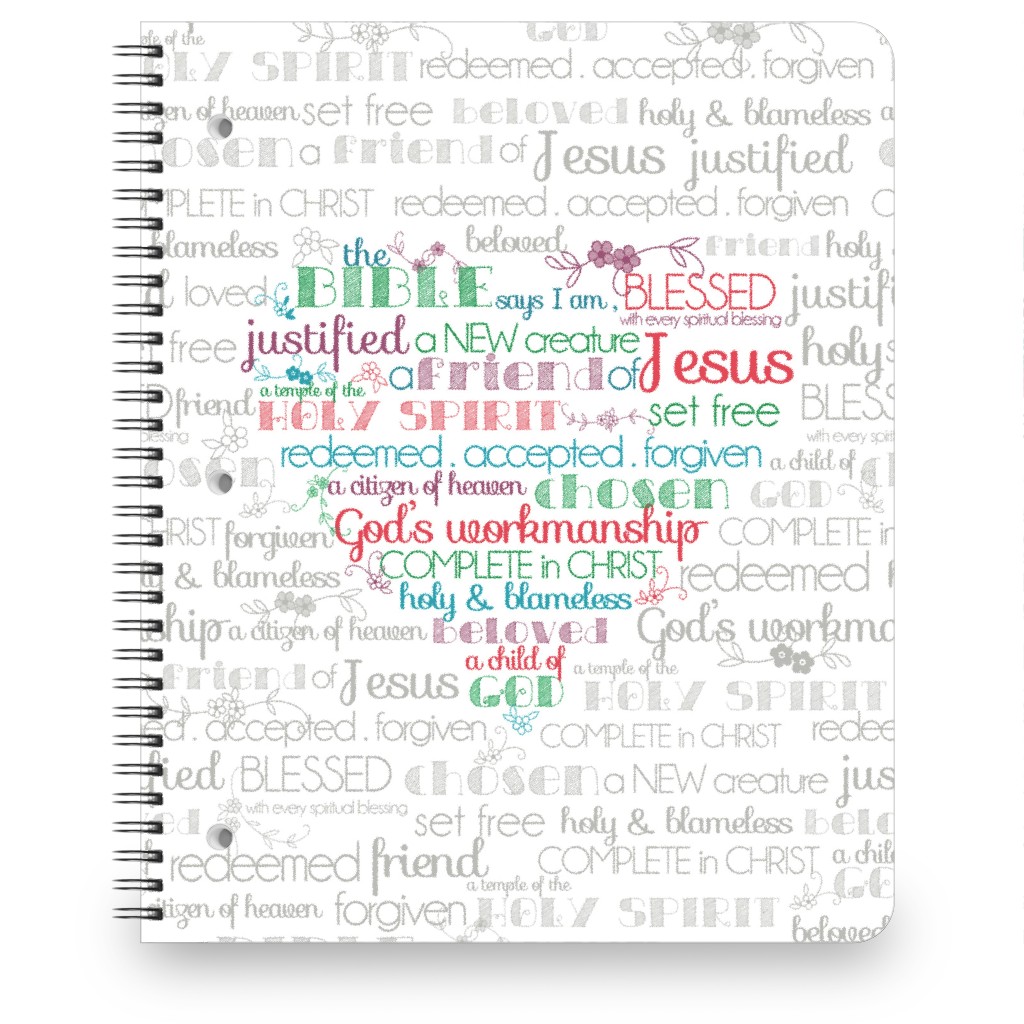 of the GOD
SPIRIT redeemed . accepted . forgiven
of heaven set free beloved holy & blameless
a friend of Jesus justified
in CHRIST redeemed . accepted . forgiven
blameless beloved friend holy
the
loved BIBLE says I am , BLESSED
with every spiritual blessing
free justified a NEW creature Jesus holy
a friend of
a temple of the
friend HOLY SPIRIT set free
blessing with every
redeemed . accepted . forgiven a child of
a citizen of heaven chosen GOD
CHRIST forgiven God's workmanship COMPLETE in
& blameless COMPLETE in CHRIST redeemed
holy & blameless
a citizen of heaven beloved God's
a child of a temple of the
friend of Jesus GOD HOLY SPIRIT
accepted . forgiven COMPLETE in CHRIST
BLESSED chosen a NEW creature
with every spiritual blessing
set free holy & blameless
redeemed friend COMPLETE in CHRIST a
a temple of the
citizen of heaven forgiven HOLY SPIRIT
beloved